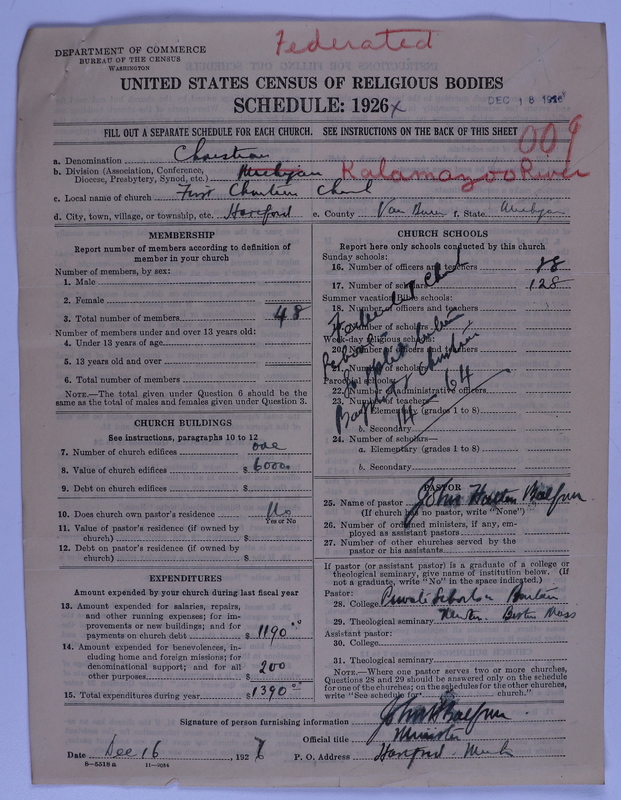 Federated
DEPARTMENT OF COMMERCE
BUREAU OF THE CENSUS
WASHINGTON
UNITED STATES CENSUS OF RELIGIOUS BODIES
SCHEDULE: 1926 x
DEC 18 1926
FILL OUT A SEPARATE SCHEDULE FOR EACH CHURCH. SEE INSTRUCTIONS ON THE BACK OF THIS SHEET
009
a. Denomination Christian
b. Division (Association, Conference, Diocese, Presbytery, Synod, etc.) Michigan Kalamazoo River
c. Local name of church First Christian Church
d. City, town, village, or township, etc. Hartford e. County Van Buren f. State Michigan
MEMBERSHIP
Report number of members according to definition of
member in your church
Number of members, by sex:
1. Male
2. Female
3. Total number of members 48
Number of members under and over 13 years old:
4. Under 13 years of age
5. 13 years old and over
6. Total number of members
NOTE.—The total given under Question 6 should be
the same as the total of males and females given under Question 3.
CHURCH BUILDINGS
See instructions, paragraphs 10 to 12
7. Number of church edifices one
8. Value of church edifices $ 6000.
9. Debt on church edifices $
10. Does church own pastor's residence? No
Yes or No
11. Value of pastor's residence (if owned by
church) $
12. Debt on pastor's residence (if owned by
church) $
EXPENDITURES
Amount expended by your church during last fiscal year
13. Amount expended for salaries, repairs,
and other running expenses; for im-
provements or new buildings; and for
payments on church debt $ 1190 00
14. Amount expended for benevolences, in-
cluding home and foreign missions; for
denominational support; and for all
other purposes $ 200
15. Total expenditures during year $ 1390
CHURCH SCHOOLS
Report here only schools conducted by this church
Sunday schools:
16. Number of officers and teachers 18
17. Number of scholars 128
Summer vacation Bible schools:
18. Number of officers and teachers
19. Number of scholars
Week-day religious schools:
20. Number of officers and teachers
21. Number of scholars
Parochial schools:
22. Number of administrative officers
23. Number of teachers—
a. Elementary (grades 1 to 8)
b. Secondary
24. Number of scholars—
a. Elementary (grades 1 to 8)
b. Secondary
Baptist Christian
14 - 64
PASTOR
25. Name of pastor John Balfour
(If church has no pastor, write "None")
26. Number of ordained ministers, if any, em-
ployed as assistant pastors
27. Number of other churches served by the
pastor or his assistants
If pastor (or assistant pastor) is a graduate of a college or
theological seminary, give name of institution below. (If
not a graduate, write "No" in the space indicated.)
Pastor:
28. College Private
29. Theological seminary Newton Boston Mass
Assistant pastor:
30. College
31. Theological seminary
NOTE.—Where one pastor serves two or more churches,
Questions 28 and 29 should be answered only on the schedule
for one of the churches; on the schedules for the other churches,
write "See schedule for church."
Signature of person furnishing information John H Balfour
Official title Minister
Date Dec 16, 1926 P. O. Address Hartford - Mich
8—5518 a 11—9084